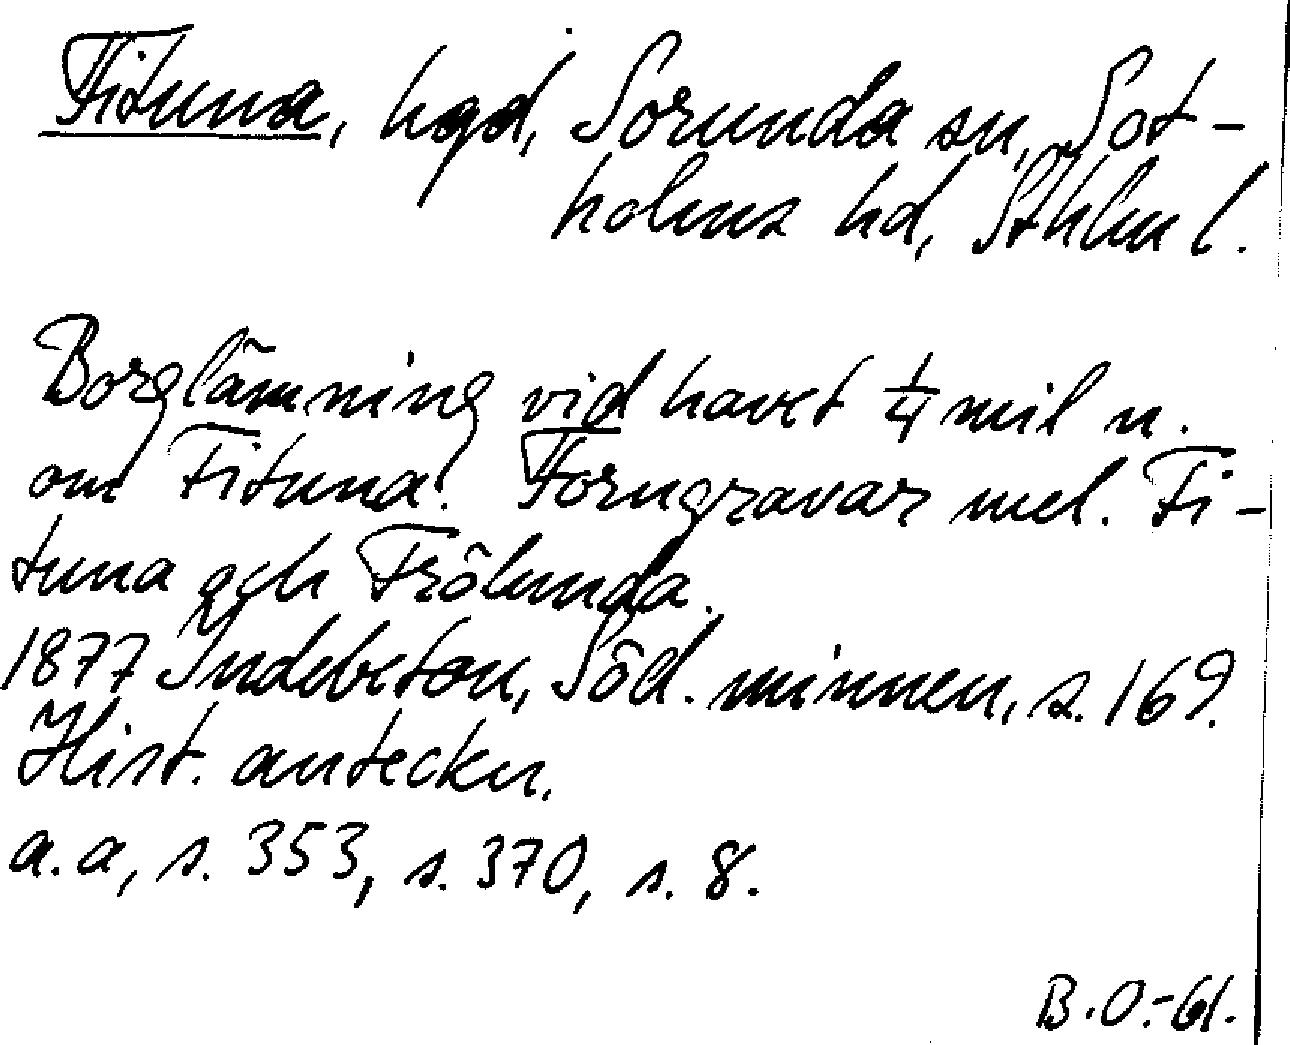 Fituna, hgd, Sorunda sn, Sot-
holms hd, Sthlm l.
Borglämning vid havet 1/4 mil n.
om Fituna. Forngravar mel. Fi-
tuna och Frölunda.
1877 Indebetou, Söd. minnen, s. 169.
Hist. anteckn.
a. a, s. 353, s. 370, s. 8.
B.O.-61.